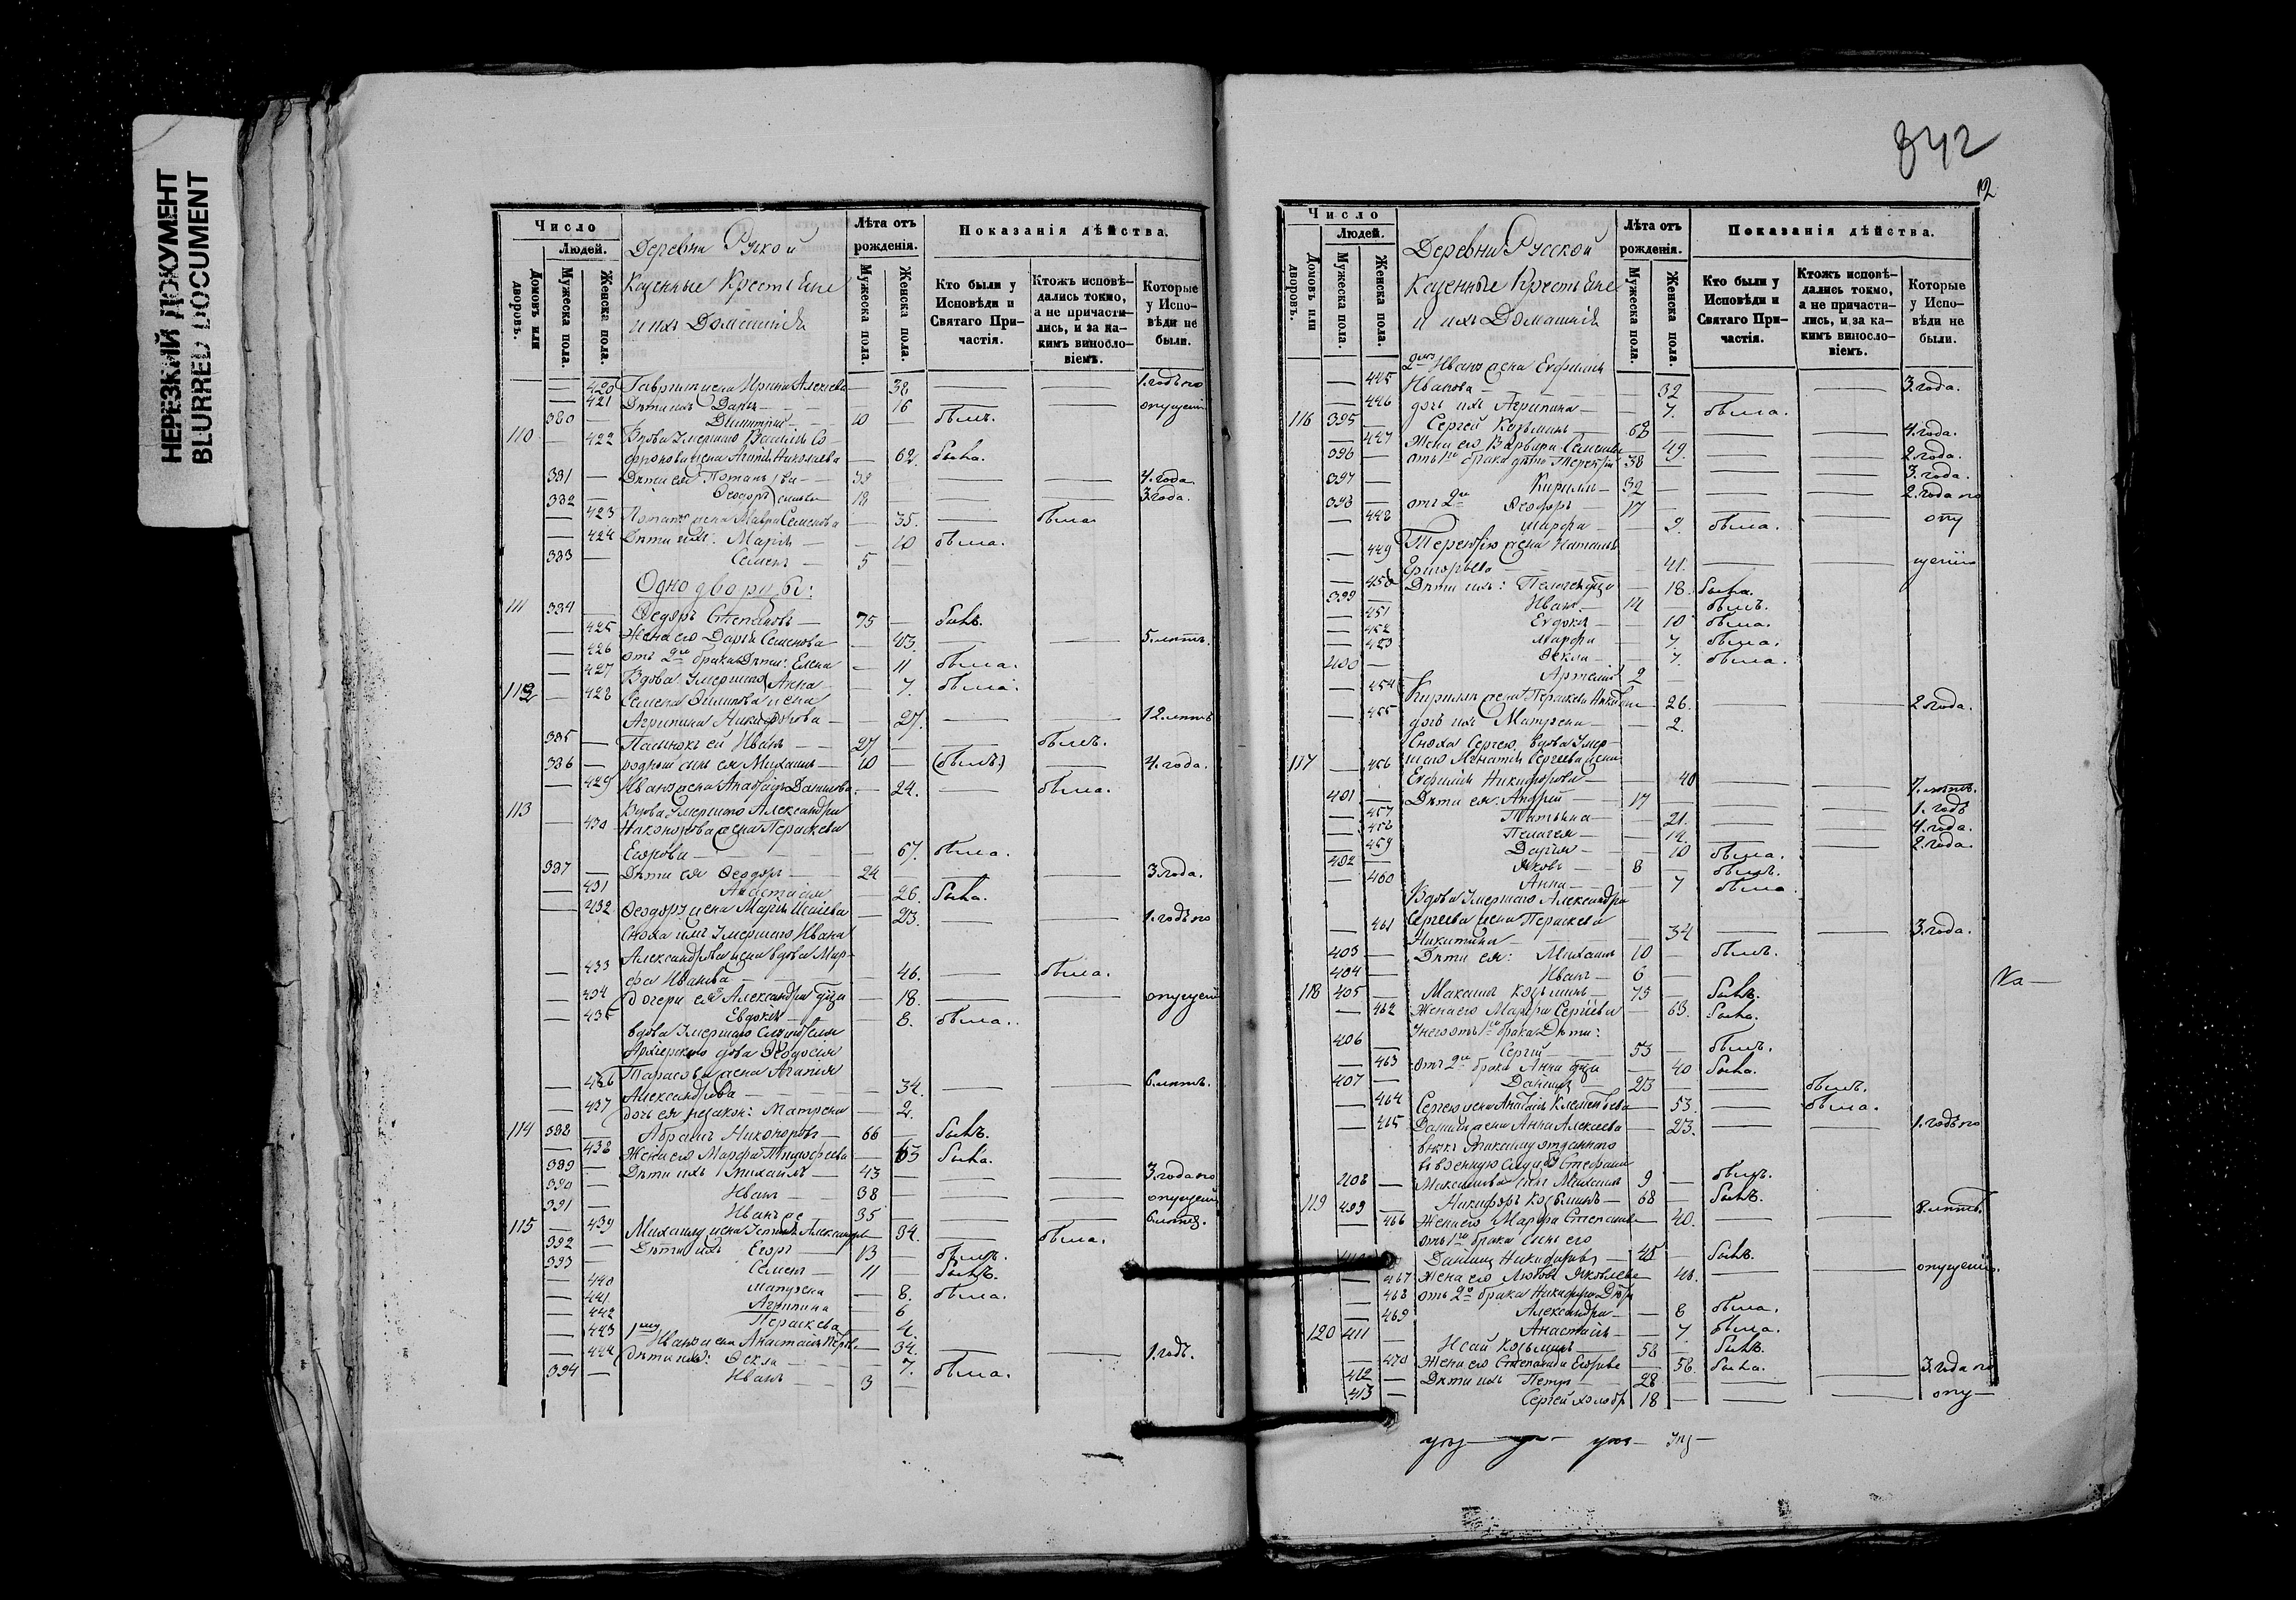 НЕРЕЗКИЙ ДОКУМЕНТ
BLURRED DOCUMENT
Число
Людей.
Домовъ или дворовъ.
Мужеска пола.
Женска пола.
Деревни Руской
Казенные Крестьяне
и ихъ Домашнія
Лѣта отъ рожденія.
Мужеска пола.
Женска пола.
Показанія дѣйства.
Кто были у Исповѣди и Святаго Причастія.
Ктожъ исповѣдались токмо, а не причастились, и за какимъ винословіемъ.
Которые у Исповѣди не были.
420 Гавріила жена Ирина Алексѣева 38 1. годъ по
421 Дѣти ихъ Дарья 16 опущенію
380 Димитрій 10 былъ.
110 422 Вдова Умершаго Василія Со-
фронова жена Николаева 62. была.
381 Дѣти ея Потапъ 39 4. года
382 Ѳеодоръ 18 3. года.
423 Потапа жена Мавра Семенова 35. была
424 Дѣти ихъ: Марія 10 была.
383 Семенъ 5
Однодворцы:
111 384 Ѳедоръ Степановъ 75 былъ.
425 Жена его Дарья Семенова 43. 5. лѣтъ.
426 отъ 2го брака Дѣти: Елена 11 была.
427 Анна 7. была.
112 428 Вдова Умершаго
Семена жена
Агрипина Никифорова 27. 12. лѣтъ
385 Пасынокъ ей Иванъ 27 былъ.
386 родной сынъ ея Михаилъ 10 (былъ.) 4. года.
429 Ивана жена Данилова 24. была.
113 430 Вдова Умершаго Александра
Никонорова жена Параскева
Егорова 67. была.
387 Дѣти ея Ѳеодоръ 24 3. года.
431 Анастасія 26. была.
432 Ѳеодора жена Марья 23. 1. годъ по
433 Сноха имъ Умершаго Ивана
Александрова жена вдова Мар-
фа Иванова 46. была.
434 дочери ея Александра дѣвица 18. опущенію
435 Евдокія 8. была.
вдова Умершаго Служителя
Архіерскаго дома Ѳеодосія
436 Тарасова жена Агапія
Александрова 34. 6. лѣтъ.
437 дочь ея незакон: Матрена 2.
114 388 Абрамъ Никоноровъ 66 былъ.
438 Жена его Марфа 63 была.
389 Дѣти ихъ Михаилъ 43 3. года по
390 Иванъ 38 опущенію
391 Иванъ же 35 6. лѣтъ.
115 439 Михаила жена 34. была.
392 Дѣти ихъ Егоръ 13 былъ.
393 Семенъ 11 былъ.
440 Матрена 8. была.
441 Агрипина 6
442 Параскева 4.
443 1му Ивану жена Анастасія 34. 1. годъ.
444 дѣти ихъ: Ѳекла 7. была.
394 Иванъ 3
842
12
Число
Людей.
Домовъ или дворовъ.
Мужеска пола.
Женска пола.
Деревни Русской
Казенные Крестьяне
и ихъ Домашнія
Лѣта отъ рожденія.
Мужеска пола.
Женска пола.
Показанія дѣйства.
Кто были у Исповѣди и Святаго Причастія.
Ктожъ исповѣдались токмо, а не причастились, и за какимъ винословіемъ.
Которые у Исповѣди не были.
445 2му Ивану жена Евфимія
Иванова 32 3. года.
446 дочь ихъ Агрипина 7. была.
116 395 Сергей Козьминъ 68 4. года.
447 Жена его Варвара Семенова 49. 2. года.
396 отъ 1го брака дѣти Терентій 38 3. года.
397 Кирилъ 32 2. года по
398 отъ 2го Ѳеодоръ 17 опу
448 Марфа 9. была.
449 Терентію жена Наталья
Григорьева 41. щенію
450 Дѣти ихъ: Пелагея дѣвица 18. была.
399 Иванъ 14 былъ.
451 Евдокія 10 была.
452 Марфа 7. была.
453 Ѳекла 7. была.
400 Артемій 2
454 Кирилла жена Параскева 26. 2. года.
455 дочь ихъ Матрена 2.
117 456 Сноха Сергею, вдова Умер-
шаго Игнатія Сергеева жена
Евфимія Никифорова 40 7. лѣтъ.
401 Дѣти ея: Андрей 17 1. годъ
457 Татьяна 21. 4. года.
458 Пелагея 14. 2. года.
459 Дарья 10 была.
402 Яковъ 8 былъ.
460 Анна 7 была
461 Вдова Умершаго Александра
Сергеева жена Параскева
Никитина 34 3. года.
403 Дѣти ея: Михаилъ 10 былъ.
404 Иванъ 6
118 405 Максимъ Козьминъ 75 былъ.
462 Жена его Марфа Сергеева 63. была.
У него отъ 1го брака Дѣти:
406 Сергей 53 былъ.
463 отъ 2го брака Анна дѣвица 40 была.
407 Данилъ 23 былъ.
464 Сергею жена Клементьева 53. была.
465 Данила жена Анна Алексеева 23. 1. годъ по
внукъ Максиму отданнаго
въ военную службу Стефана
408 Максимова сынъ Михаилъ 9 былъ.
119 409 Никифоръ Козьминъ 68 былъ.
466 Жена его Марфа Степанова 40. 8. лѣтъ.
отъ 1го брака Сынъ его
Данилъ Никифоровъ 45 былъ.
467 Жена его Любовь Яковлева 40. опущенію.
468 отъ 2го брака Никифора Дѣти
469 Александра 8 была.
Анастасія 7. была.
120 411 Исай Козьминъ 58 былъ.
470 Жена его Степанида Егорова 58. была.
412 Дѣти ихъ Петръ 28 3. года по
413 Сергей 18 опу